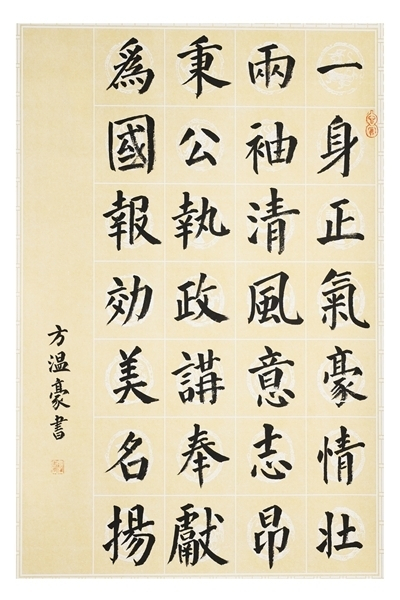 一身正氣豪情壯
兩袖清風意志昂
秉公執政講奉獻
為國報効美名揚
方温豪書